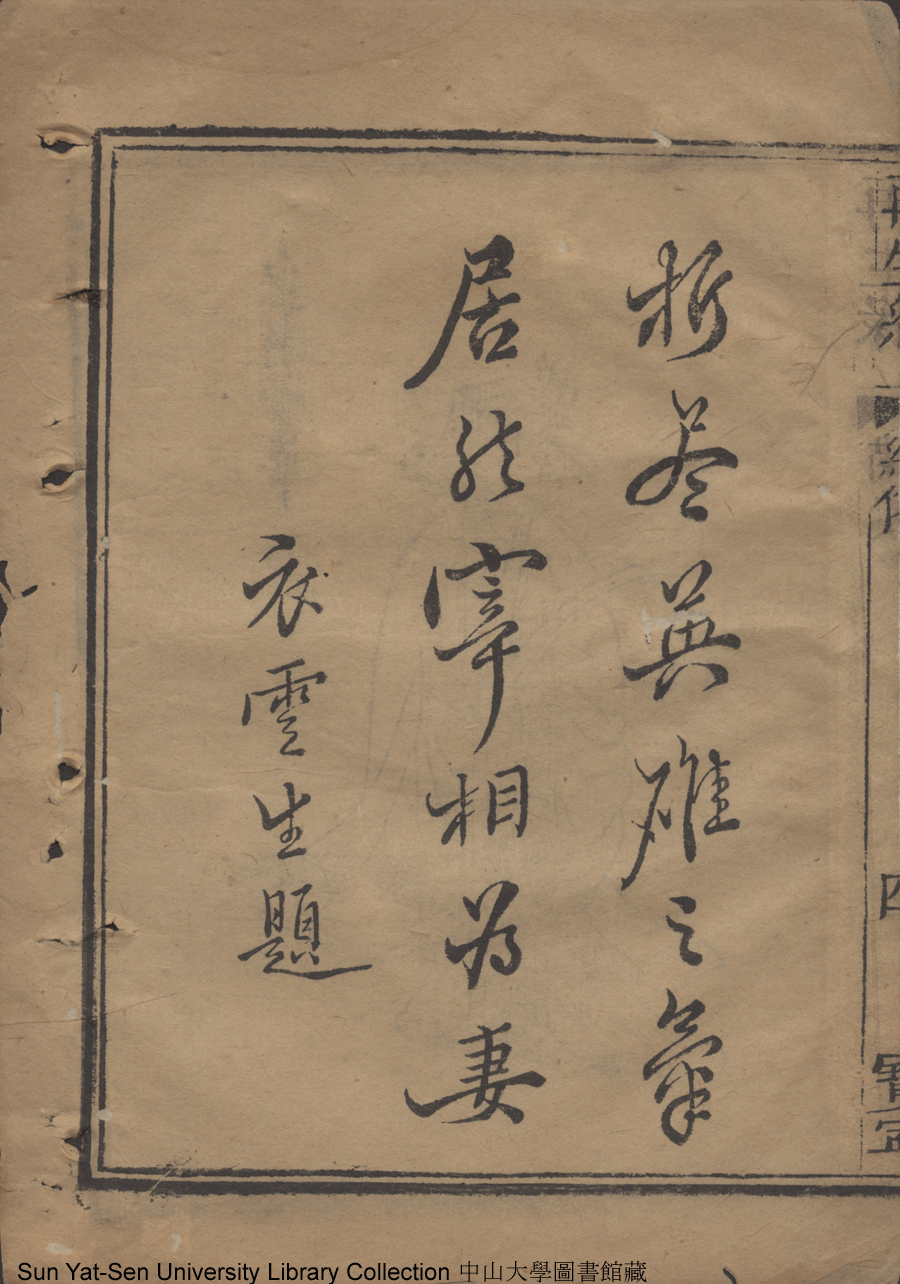 折尽英雄之氣
居然宰相为妻
衣雲生題
再生緣
繡像
四
寶寧
Sun Yat-Sen University Library Collection 中山大學圖書館藏